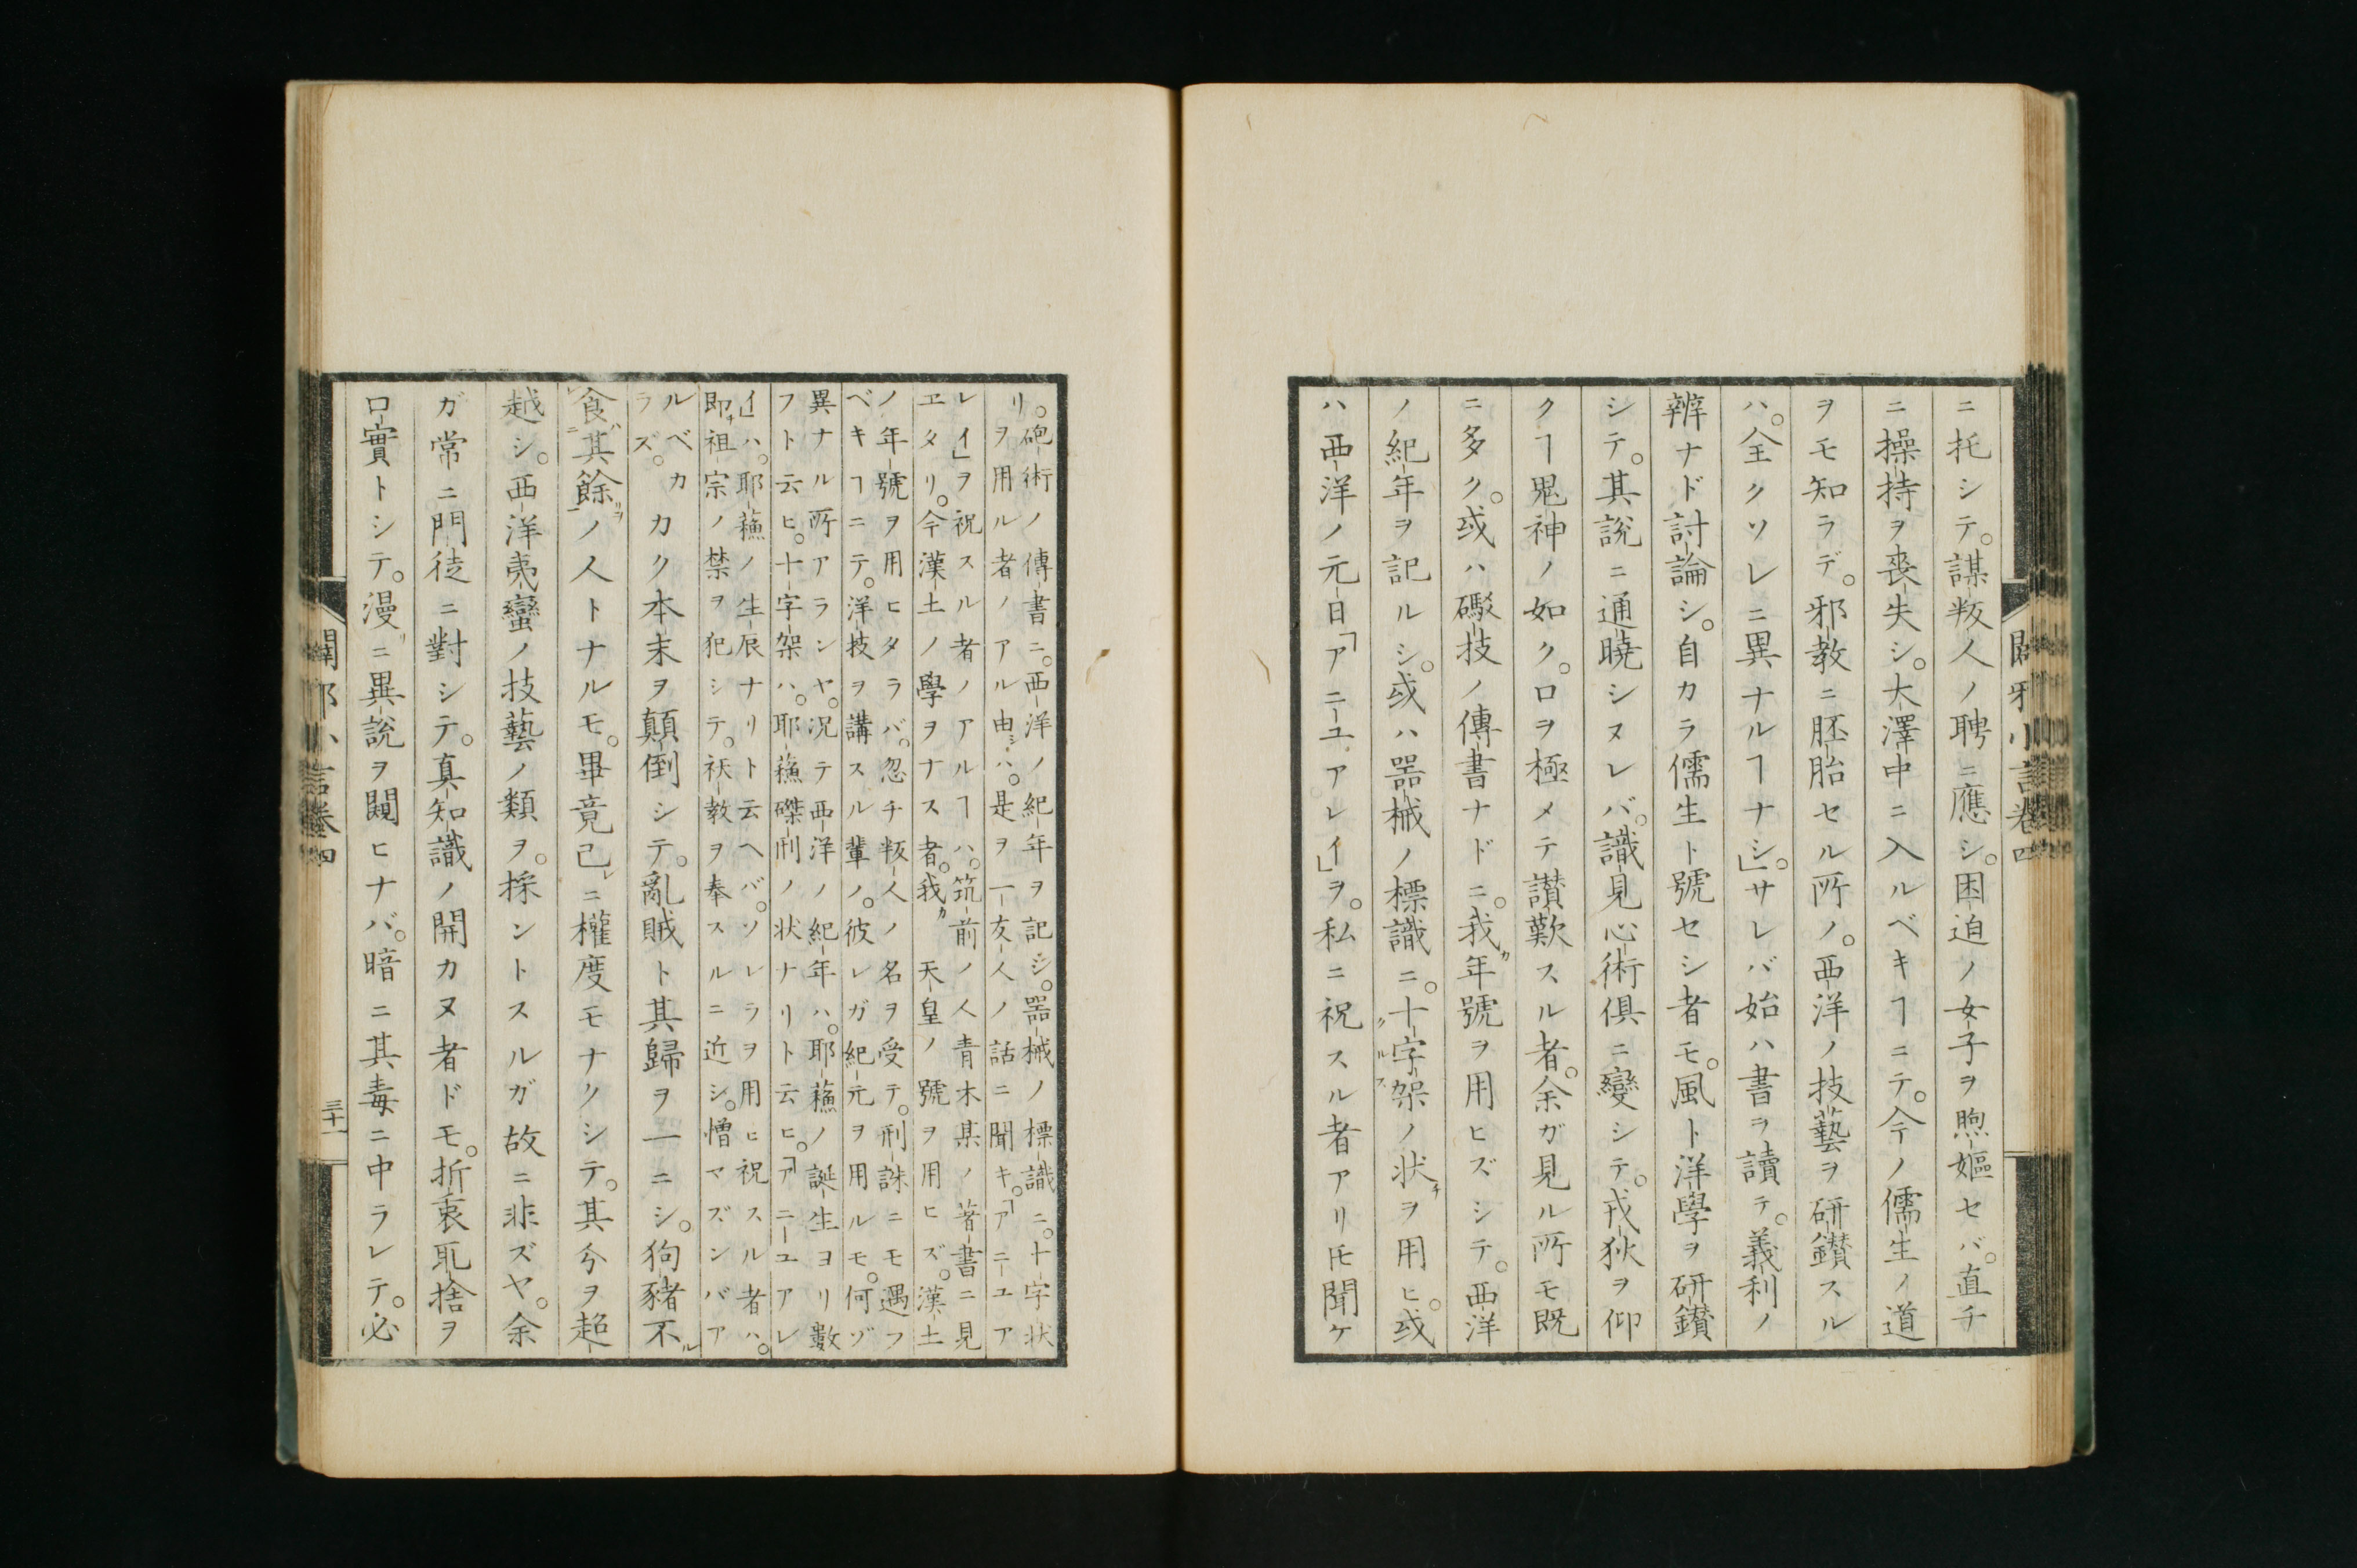 ニ托シテ。謀叛人ノ聘ニ應シ。困迫ノ女子ヲ煦嫗セバ。直チ
ニ操持ヲ喪失シ。大澤中ニ入ルベキヿニテ。今ノ儒生ノ道
ヲモ知ラデ。邪教ニ胚胎セル所ノ。西洋ノ技藝ヲ研鑚スル
ハ。全クソレニ異ナルヿナシ」。サレバ始ハ書ヲ讀テ。義利ノ
辨ナド討論シ。自カラ儒生ト號セシ者モ。風ト洋學ヲ研鑚
シテ。其説ニ通曉シヌレバ。識見心術俱ニ變シテ。戎狄ヲ仰
クヿ鬼神ノ如ク。口ヲ極メテ讃歎スル者。余ガ見ル所モ既
ニ多ク。或ハ礟技ノ傳書ナドニ。我カ年號ヲ用ヒズシテ。西洋
ノ紀年ヲ記ルシ。或ハ噐械ノ標識ニ。十字架クルスノ状チヲ用ヒ。或
ハ西洋ノ元日「アニーユアレイ」ヲ。私ニ祝スル者アリ𪜈聞ケ
リ。砲術ノ傳書ニ。西洋ノ紀年ヲ記シ。噐械ノ標識ニ。十字状
ヲ用ル者ノアル由シハ。是ヲ一友人ノ話ニ聞キ。「アニーユア
レイ」ヲ祝スル者ノアルヿハ。筑前ノ人青木某ノ著書ニ見
ヱタリ。今漢土ノ學ヲナス者。我カ 天皇ノ號ヲ用ヒズ。漢土
ノ年號ヲ用ヒタラバ。忽チ叛人ノ名ヲ受テ。刑誅ニモ遇フ
ベキヿニテ。洋技ヲ講スル輩ノ。彼レガ紀元ヲ用ルモ。何ゾ
異ナル所アランヤ。况テ西洋ノ紀年ハ。耶蘓ノ誕生ヨリ數
フト云ヒ。十字架ハ。耶蘓磔刑ノ状ナリト云ヒ。「アニーユアレ
イ」ハ。耶蘓ノ生辰ナリト云ヘバ。ソレラヲ用ヒ祝スル者ハ。
即チ祖宗ノ禁ヲ犯シテ。祅教ヲ奉スルニ近シ。憎マズンバア
ルベカ
ラズ。 カク本末ヲ顛倒シテ。亂賊ト其歸ヲ一ニシ。狗豬不ル
食ハ其ニ餘リヲノ人トナルモ。畢竟己レニ權度モナクシテ。其分ヲ超
越シ。西洋夷蠻ノ技藝ノ類ヲ。採ントスルガ故ニ非ズヤ。余
ガ常ニ門徒ニ對シテ。真知識ノ開カヌ者ドモ。折衷取捨ヲ
口實トシテ。漫リニ異説ヲ闚ヒナバ。暗ニ其毒ニ中ラレテ。必
闢邪小言卷四
三十一
闢邪小言卷四